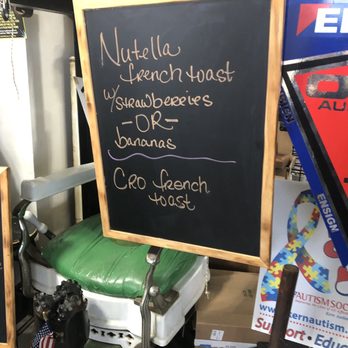 Nutella
french toast
w/strawberries
-OR-
bananas
CRO french
toast
ENSIGN
AU
AUTISM SOCIE
kernautism.
Support • Educ